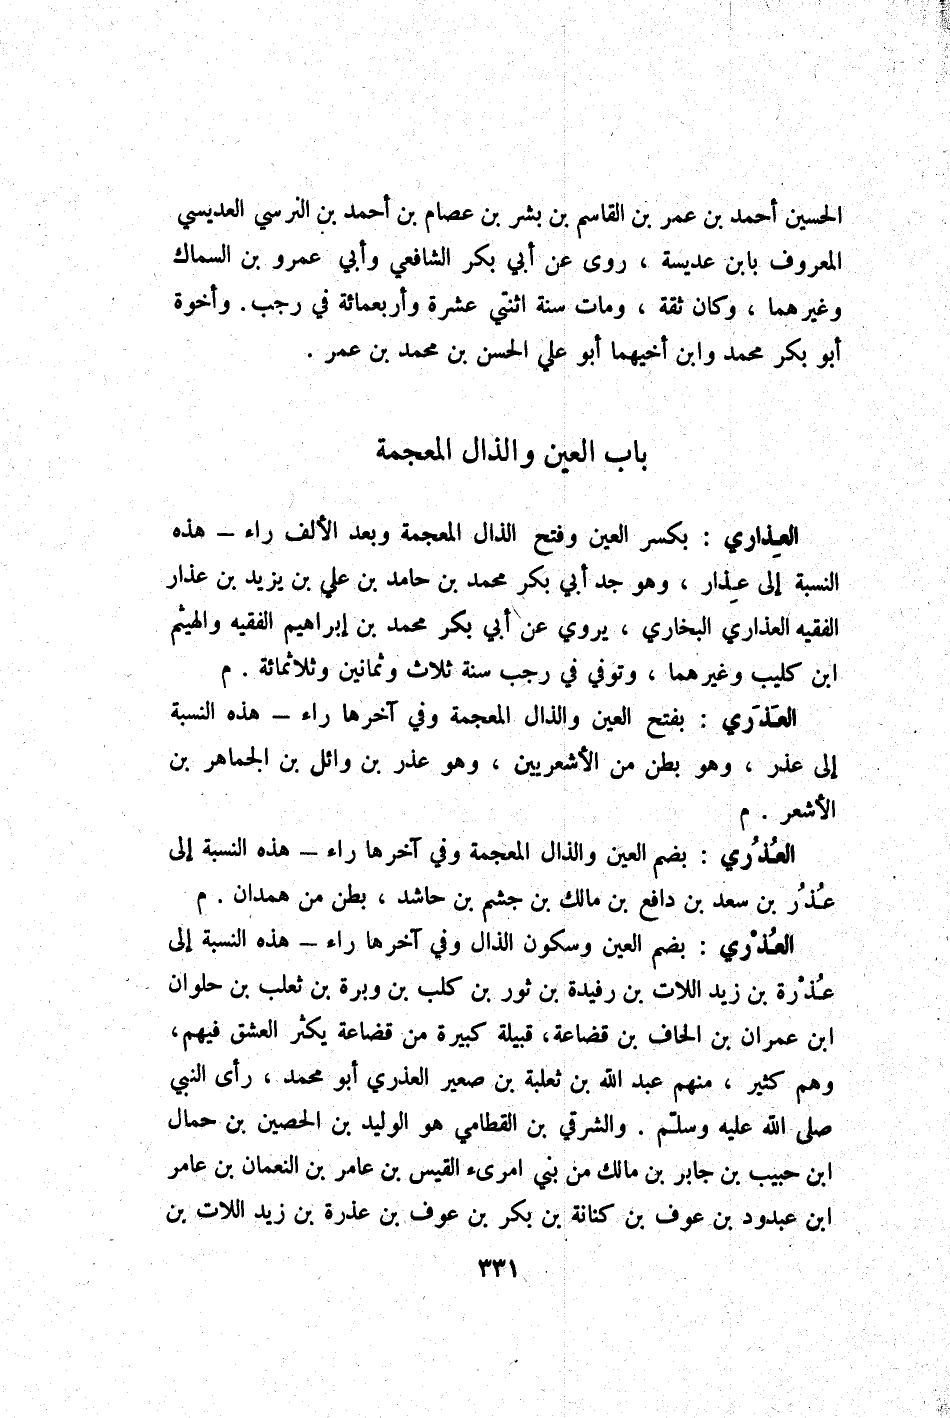 الحسين أحمد بن عمر بن القاسم بن بشر بن عصام بن أحمد بن النرسي العديسي
المعروف بابن عديسة ، روى عن أبي بكر الشافعي وأبي عمرو بن السماك
وغيرهما ، وكان ثقة ، ومات سنة اثنتي عشرة وأربعمائة في رجب . وأخوة
أبو بكر محمد وابن أخيهما أبو علي الحسن بن محمد بن عمر .
باب العين والذال المعجمة
العِذاري : بكسر العين وفتح الذال المعجمة وبعد الألف راء – هذه
النسبة إلى عِذار ، وهو جد أبي بكر محمد بن حامد بن علي بن يزيد بن عذار
الفقيه العذاري البخاري ، يروي عن أبي بكر محمد بن إبراهيم الفقيه والهيثم
ابن كليب وغيرهما ، وتوفي في رجب سنة ثلاث وثمانين وثلاثمائة . م
العَذَري : بفتح العين والذال المعجمة وفي آخرها راء – هذه النسبة
إلى عذر ، وهو بطن من الأشعريين ، وهو عذر بن وائل بن الجماهر بن
الأشعر . م
العُذُري : بضم العين والذال المعجمة وفي آخرها راء – هذه النسبة إلى
عُذُر بن سعد بن دافع بن مالك بن جشم بن حاشد ، بطن من همدان . م
العُذْري : بضم العين وسكون الذال وفي آخرها راء – هذه النسبة إلى
عُذْرة بن زيد اللات بن رفيدة بن ثور بن كلب بن وبرة بن ثعلب بن حلوان
ابن عمران بن الحاف بن قضاعة، قبيلة كبيرة من قضاعة يكثر العشق فيهم،
وهم كثير ، منهم عبد الله بن ثعلبة بن صعير العذري أبو محمد ، رأى النبي
صلى الله عليه وسلّم . والشرقي بن القطامي هو الوليد بن الحصين بن حمال
ابن حبيب بن جابر بن مالك من بني امرىء القيس بن عامر بن النعمان بن عامر
ابن عبدود بن عوف بن كنانة بن بكر بن عوف بن عذرة بن زيد اللات بن
٣٣١